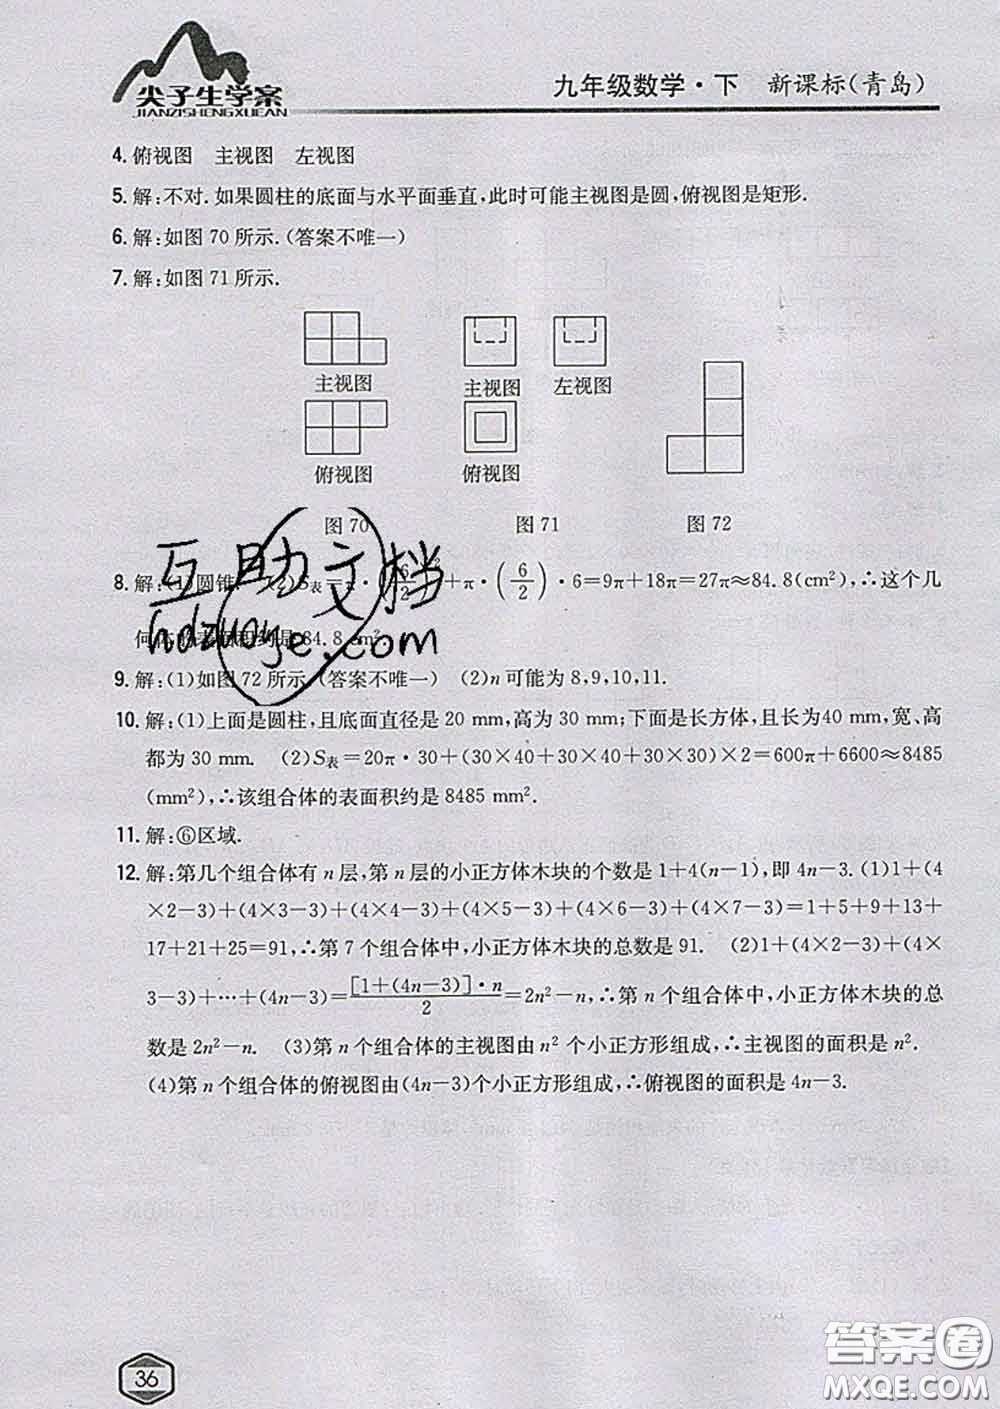 尖子生学案
JIANZISHENGXUEAN
九年级数学·下 新课标(青岛)
4. 俯视图 主视图 左视图
5. 解:不对.如果圆柱的底面与水平面垂直,此时可能主视图是圆,俯视图是矩形.
6. 解:如图 70 所示.(答案不唯一)
7. 解:如图 71 所示.
主视图 主视图 左视图
俯视图 俯视图
图 70 图 71 图 72
8. 解:(1)圆锥. (2)S表=π·(6/2)²+π·(6/2)·6=9π+18π=27π≈84.8(cm²),∴这个几
何体的表面积约是 84.8 cm².
互助文档
hdzuoye.com
9. 解:(1)如图 72 所示.(答案不唯一) (2)n 可能为 8,9,10,11.
10. 解:(1)上面是圆柱,且底面直径是 20 mm,高为 30 mm;下面是长方体,且长为40 mm,宽、高
都为 30 mm. (2)S表=20π·30+(30×40+30×40+30×30)×2=600π+6600≈8485
(mm²),∴该组合体的表面积约是 8485 mm².
11. 解:⑥区域.
12. 解:第几个组合体有 n 层,第 n 层的小正方体木块的个数是 1+4(n-1),即 4n-3. (1)1+(4
×2-3)+(4×3-3)+(4×4-3)+(4×5-3)+(4×6-3)+(4×7-3)=1+5+9+13+
17+21+25=91,∴第 7 个组合体中,小正方体木块的总数是 91. (2)1+(4×2-3)+(4×
3-3)+…+(4n-3)=[1+(4n-3)]·n/2=2n²-n,∴第 n 个组合体中,小正方体木块的总
数是 2n²-n. (3)第 n 个组合体的主视图由 n² 个小正方形组成,∴主视图的面积是 n².
(4)第 n 个组合体的俯视图由(4n-3)个小正方形组成,∴俯视图的面积是 4n-3.
36
答案圈
MXQE.COM